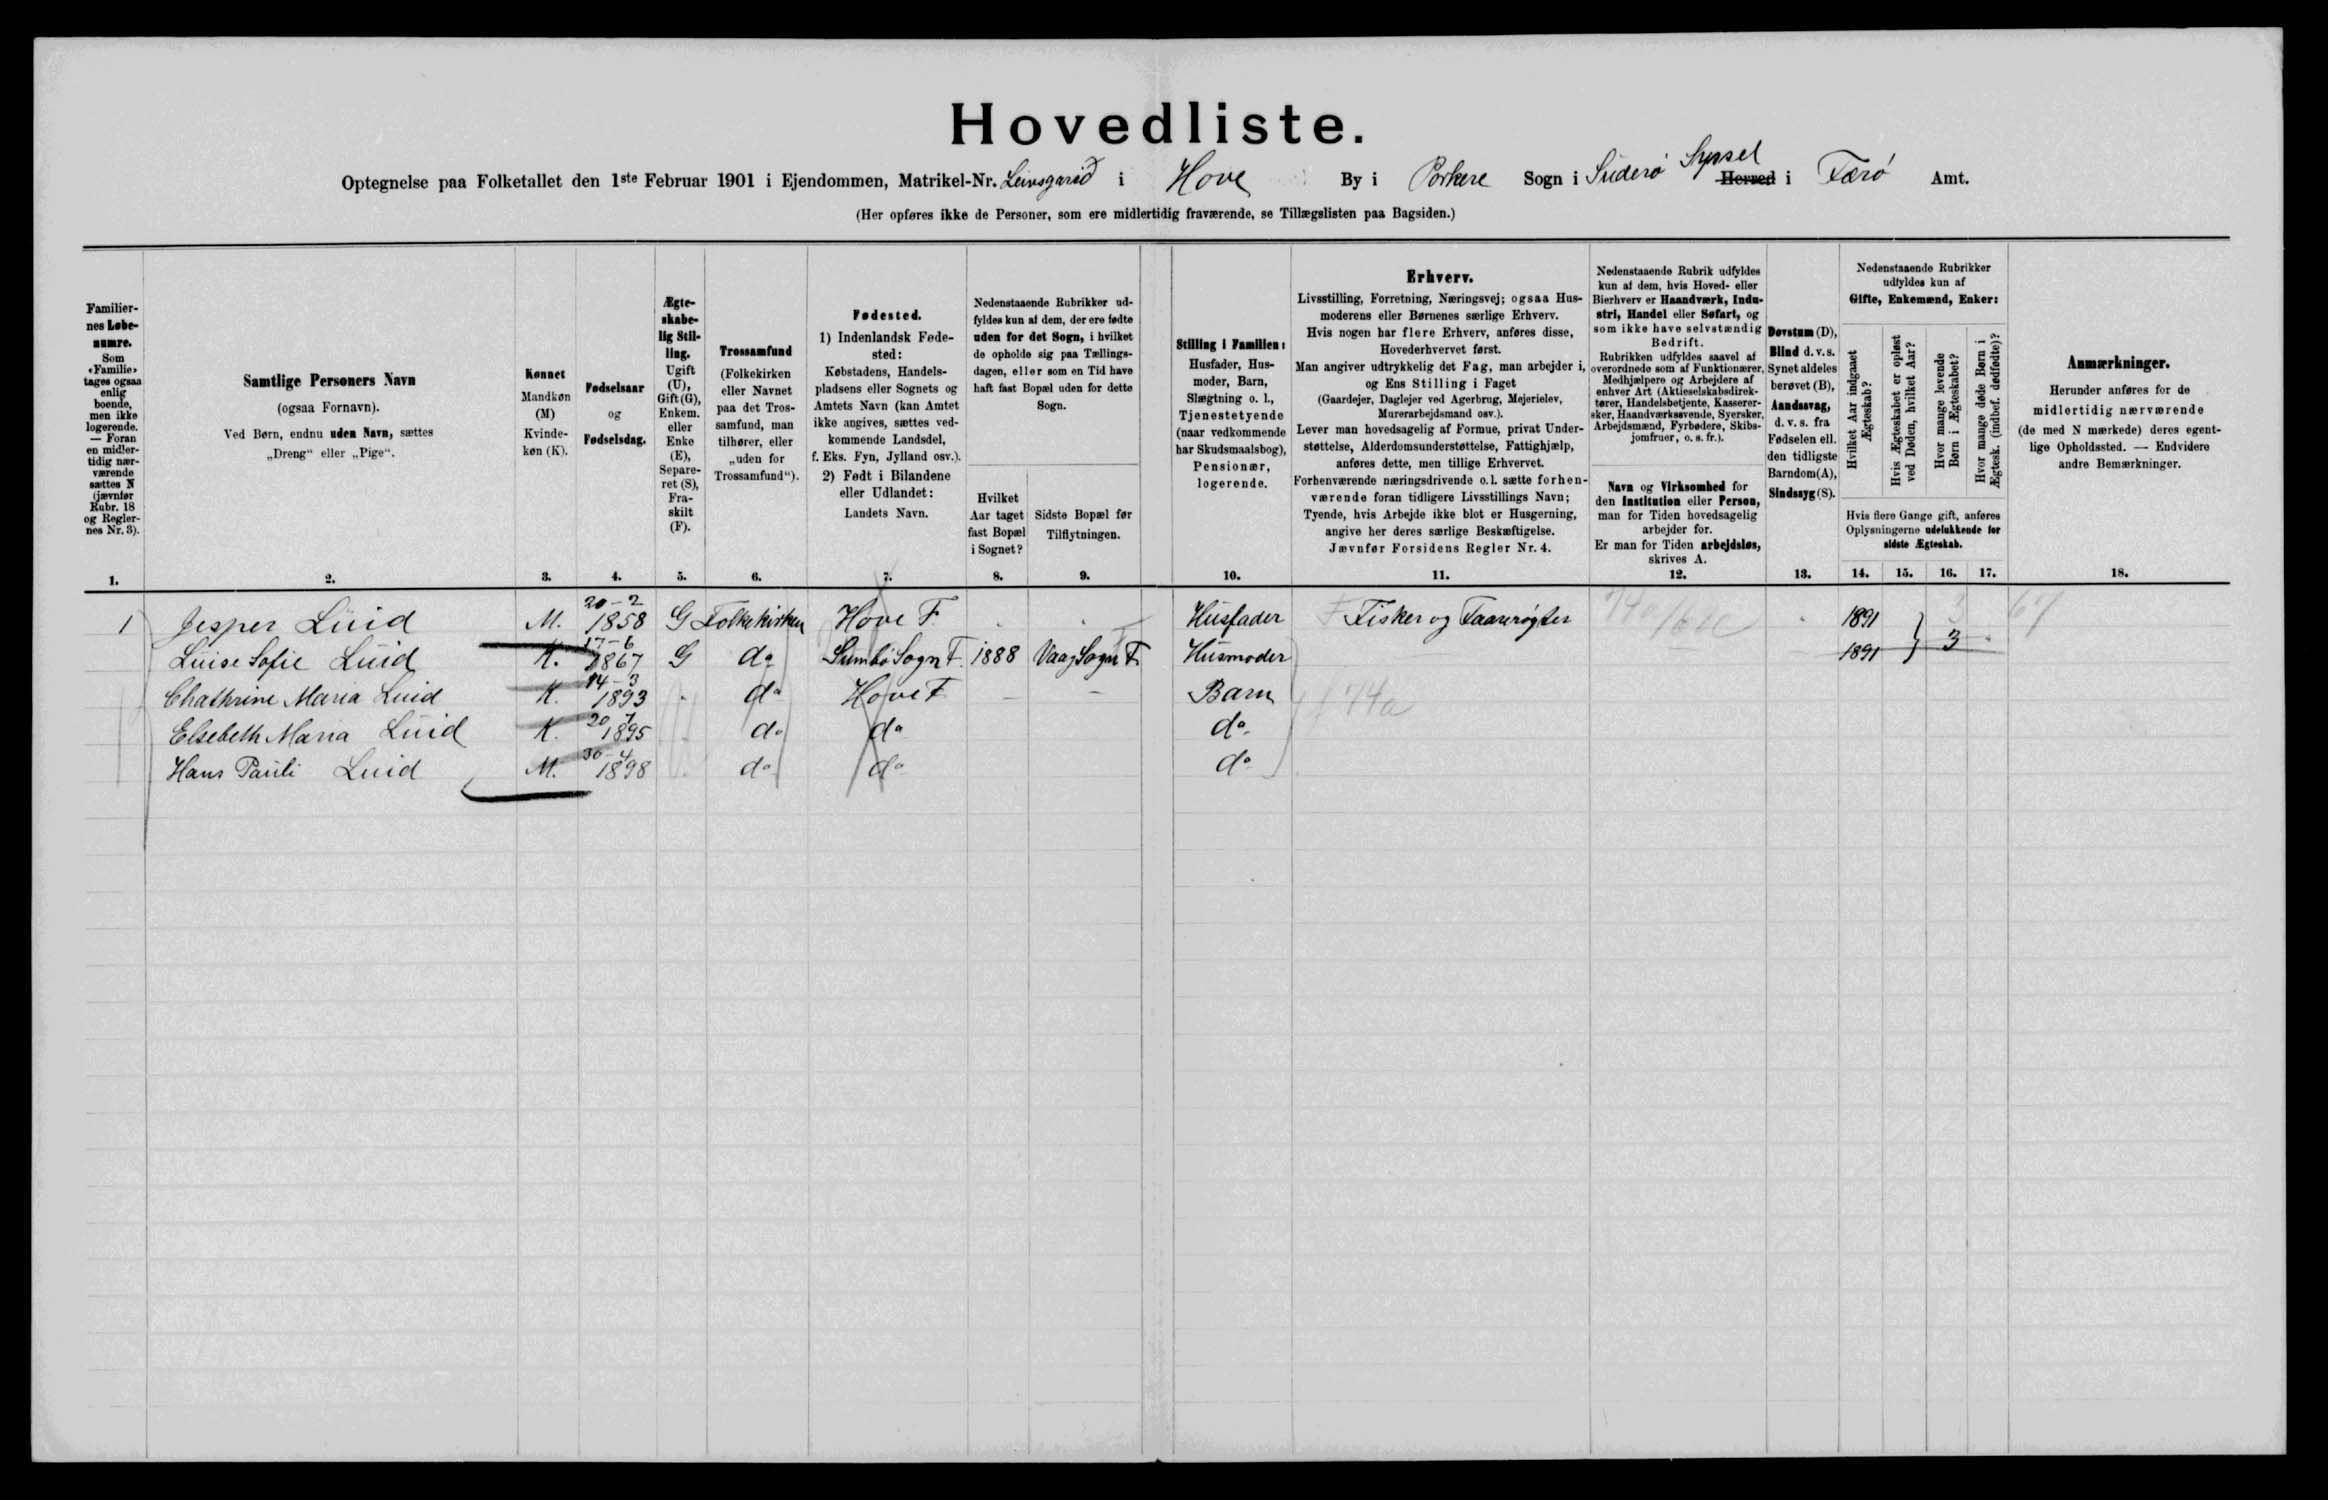 Hovedliste.
Optegnelse paa Folketallet den 1ste Februar 1901 i Ejendommen, Matrikel-Nr. Leivsgarið i Hove By i Porkere Sogn i Suderø Syssel Herred i Færø Amt.
(Her opføres ikke de Personer, som ere midlertidig fraværende, se Tillægslisten paa Bagsiden.)
Familier-
nes Løbe-
numre.
Som
«Familie»
tages ogsaa
enlig
boende,
men ikke
logerende.
— Foran
en midler-
tidig nær-
værende
sættes N
(jævnfør
Rubr. 18
og Regler-
nes Nr. 3).
1.
Samtlige Personers Navn
(ogsaa Fornavn).
Ved Børn, endnu uden Navn, sættes
„Dreng“ eller „Pige“.
2.
Kønnet
Mandkøn
(M)
Kvinde-
køn (K).
3.
Fødselsaar
og
Fødselsdag.
4.
Ægte-
skabe-
lig Stil-
ling.
Ugift
(U),
Gift (G),
Enkem.
eller
Enke
(E),
Separe-
ret (S),
Fra-
skilt
(F).
5.
Trossamfund
(Folkekirken
eller Navnet
paa det Tros-
samfund, man
tilhører, eller
„uden for
Trossamfund“).
6.
Fødested.
1) Indenlandsk Føde-
sted:
Købstadens, Handels-
pladsens eller Sognets og
Amtets Navn (kan Amtet
ikke angives, sættes ved-
kommende Landsdel,
f. Eks. Fyn, Jylland osv.).
2) Født i Bilandene
eller Udlandet:
Landets Navn.
7.
Nedenstaaende Rubrikker ud-
fyldes kun af dem, der ere fødte
uden for det Sogn, i hvilket
de opholde sig paa Tællings-
dagen, eller som en Tid have
haft fast Bopæl uden for dette
Sogn.
Hvilket
Aar taget
fast Bopæl
i Sognet?
8.
Sidste Bopæl før
Tilflytningen.
9.
Stilling i Familien:
Husfader, Hus-
moder, Barn,
Slægtning o. l.,
Tjenestetyende
(naar vedkommende
har Skudsmaalsbog),
Pensionær,
logerende.
10.
Erhverv.
Livsstilling, Forretning, Næringsvej; ogsaa Hus-
moderens eller Børnenes særlige Erhverv.
Hvis nogen har flere Erhverv, anføres disse,
Hovederhvervet først.
Man angiver udtrykkelig det Fag, man arbejder i,
og Ens Stilling i Faget
(Gaardejer, Daglejer ved Agerbrug, Mejerielev,
Murerarbejdsmand osv.).
Lever man hovedsagelig af Formue, privat Under-
støttelse, Alderdomsunderstøttelse, Fattighjælp,
anføres dette, men tillige Erhvervet.
Forhenværende næringsdrivende o. l. sætte forhen-
værende foran tidligere Livsstillings Navn;
Tyende, hvis Arbejde ikke blot er Husgerning,
angive her deres særlige Beskæftigelse.
Jævnfør Forsidens Regler Nr. 4.
11.
Nedenstaaende Rubrik udfyldes
kun af dem, hvis Hoved- eller
Bierhverv er Haandværk, Indu-
stri, Handel eller Søfart, og
som ikke have selvstændig
Bedrift.
Rubrikken udfyldes saavel af
overordnede som af Funktionærer,
Medhjælpere og Arbejdere af
enhver Art (Aktieselskabsdirek-
tører, Handelsbetjente, Kasserer-
sker, Haandværkssvende, Syersker,
Arbejdsmænd, Fyrbødere, Skibs-
jomfruer, o. s. fr.).
Navn og Virksomhed for
den Institution eller Person,
man for Tiden hovedsagelig
arbejder for.
Er man for Tiden arbejdsløs,
skrives A.
12.
Døvstum (D),
Blind d. v. s.
Synet aldeles
berøvet (B),
Aandssvag,
d. v. s. fra
Fødselen ell.
den tidligste
Barndom (A),
Sindssyg (S).
13.
Nedenstaaende Rubrikker
udfyldes kun af
Gifte, Enkemænd, Enker:
Hvilket Aar indgaaet
Ægteskab?
Hvis Ægteskabet er opløst
ved Døden, hvilket Aar?
Hvor mange levende
Børn i Ægteskabet?
Hvor mange døde Børn i
Ægtesk. (indbef. dødfødte)?
Hvis flere Gange gift, anføres
Oplysningerne udelukkende for
sidste Ægteskab.
14. 15. 16. 17.
Anmærkninger.
Herunder anføres for de
midlertidig nærværende
(de med N mærkede) deres egent-
lige Opholdssted. — Endvidere
andre Bemærkninger.
18.
1 Jesper Luid M. 20-2 1858 G Folkekirken Hove F Husfader Fisker og Faarerøgter 1891 3 67
Luise Sofie Luid K. 17-6 1867 G do Sumbø Sogn F. 1888 Vaag Sogn F. Husmoder 1891 3
Chathrine Maria Luid K. 14-3 1893 do Hove F — — Barn 74a
Elsebeth Maria Luid K. 20-7 1895 do do do
Hans Pauli Luid M. 30-4 1898 do do do